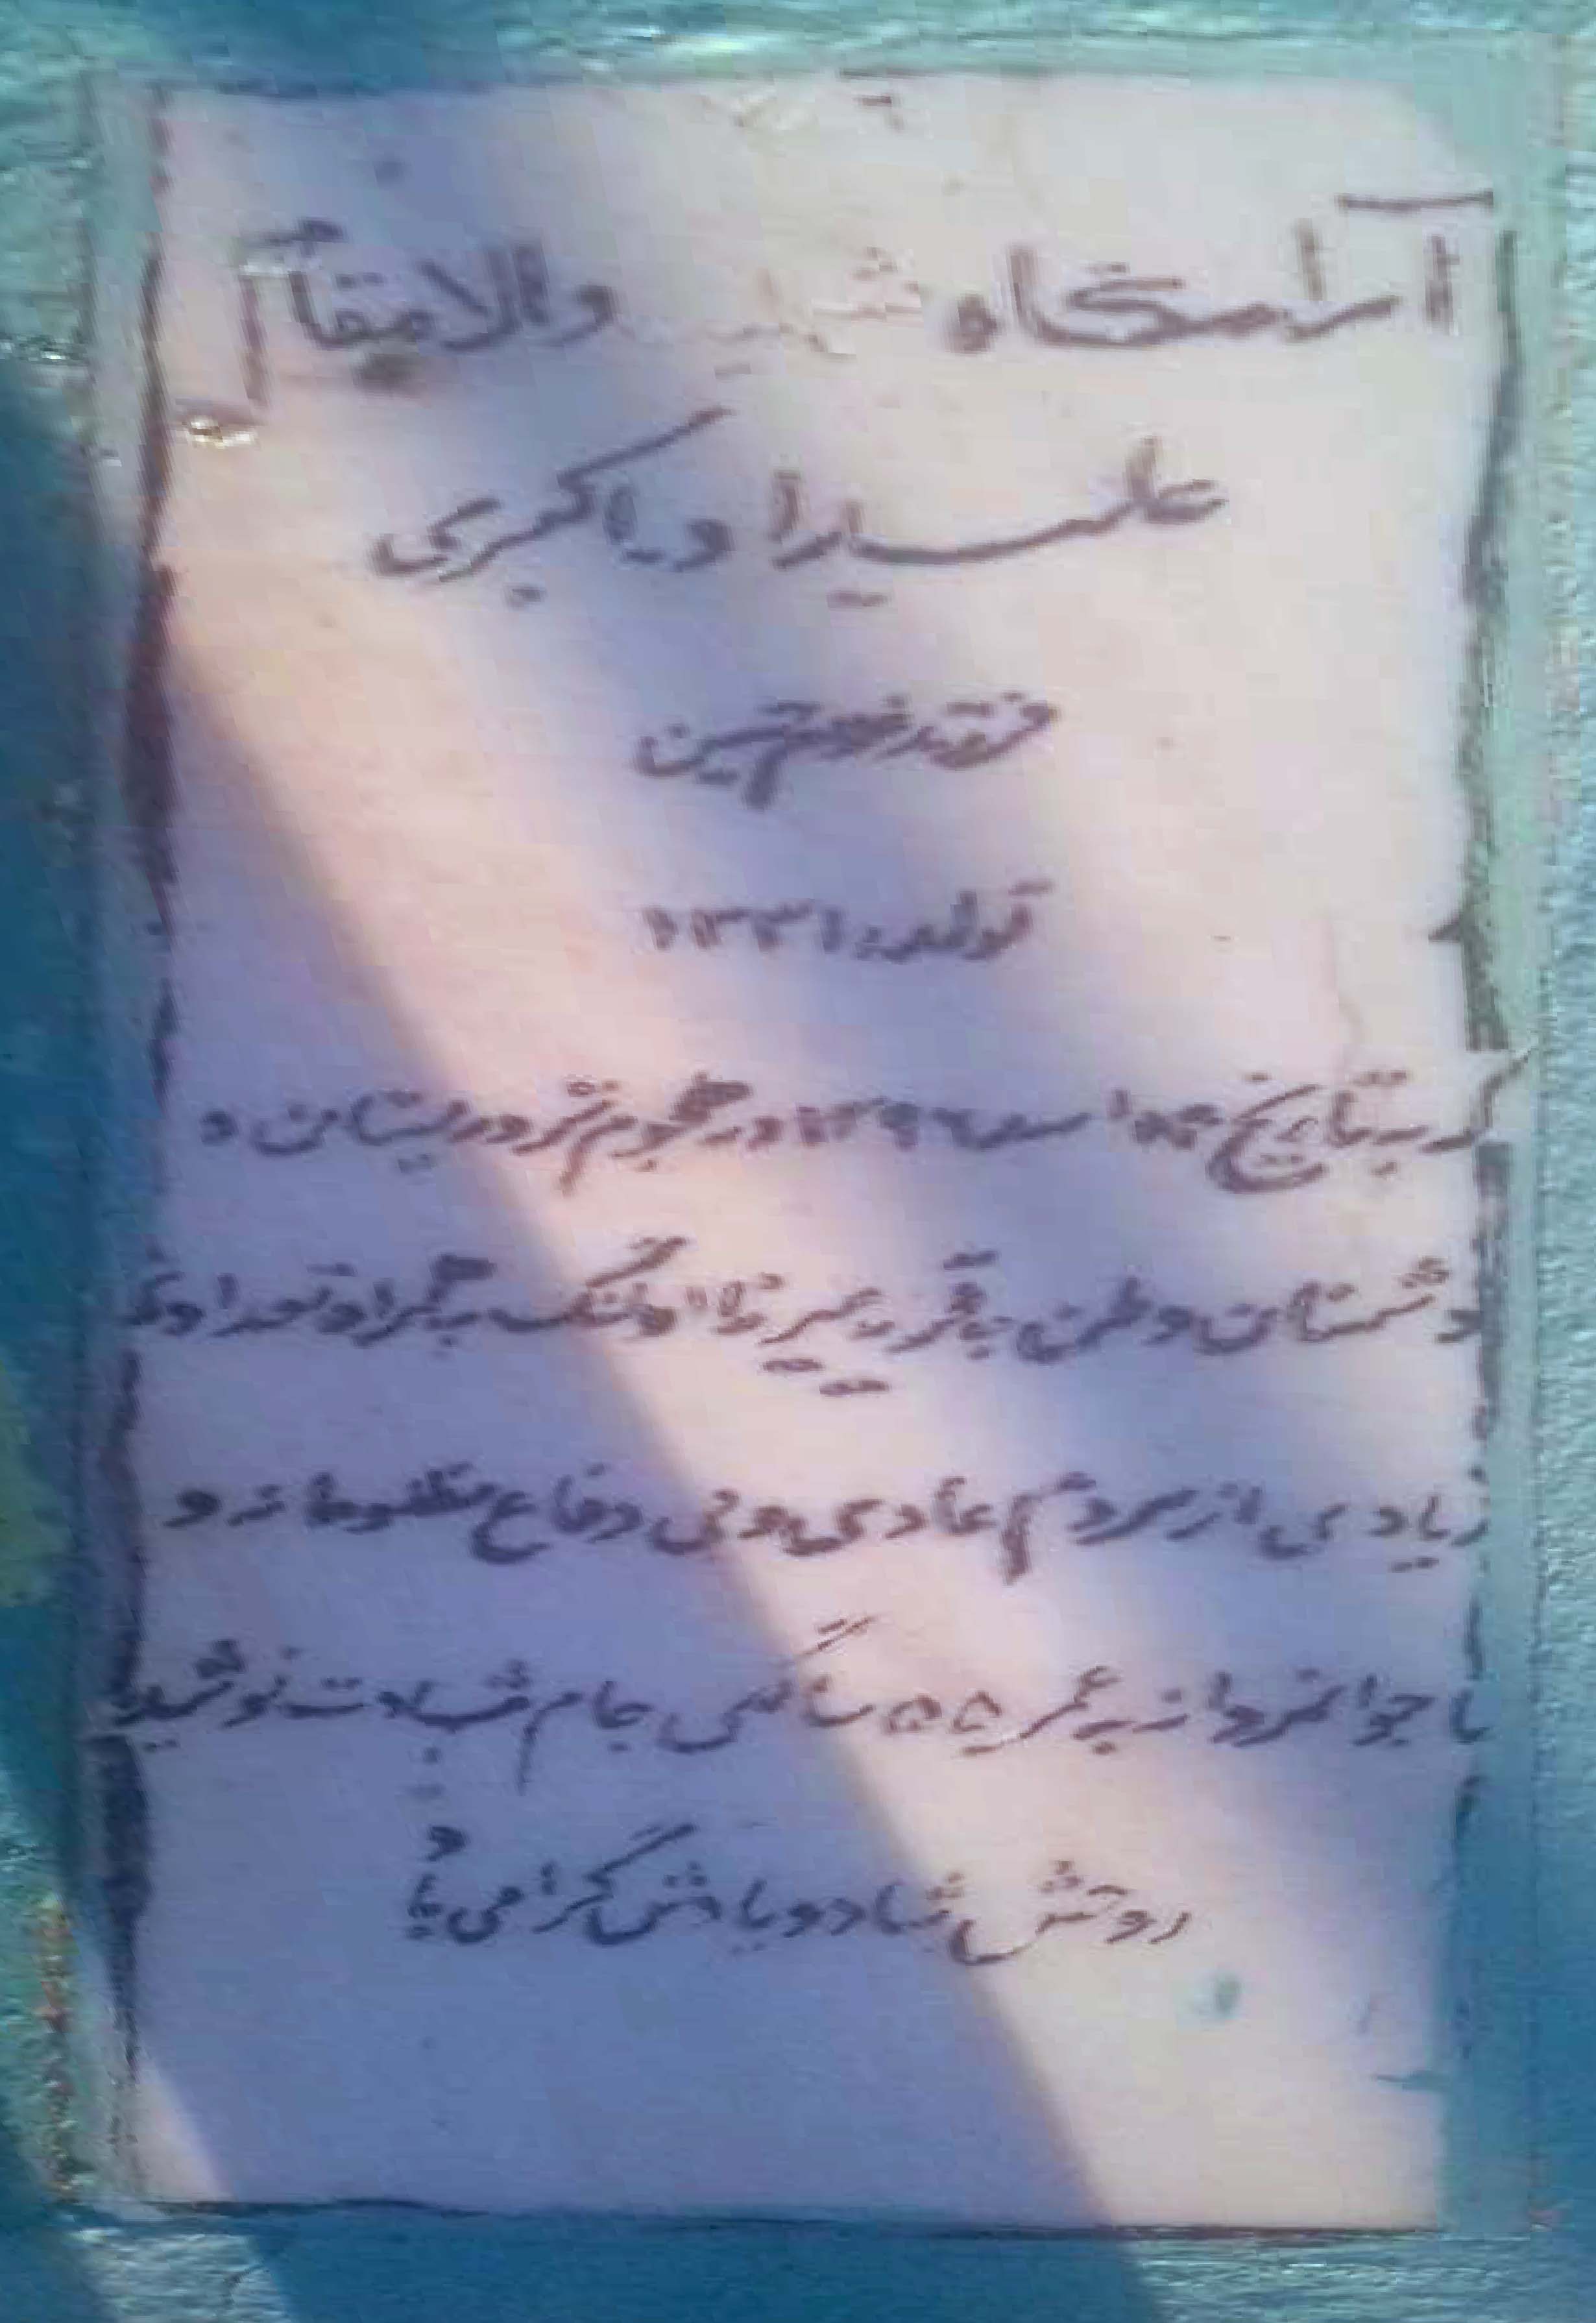 آرامگاه شهید والامقام
علیداد اکبری
فرزند غلام حسین
تولد: ۱۳۴۱
که به تاریخ اسد ۱۳۹۶ در هجوم تروریستان و
دشمنان وطن به قریه میرزا اولنگ به همراه تعداد
زیادی از مردم عادی و بی دفاع مظلومانه و
با جوانمردانه به عمر ۵۵ سالگی جام شهادت نوشید
روحش شاد و یادش گرامی باد